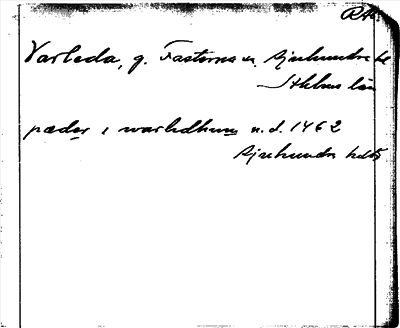 RA.
Varleda, g. Fasterna sn. Sjuhundra hd
Sthlms län
pædær i warledhum n. d. 1462
Sjuhundra hdtb